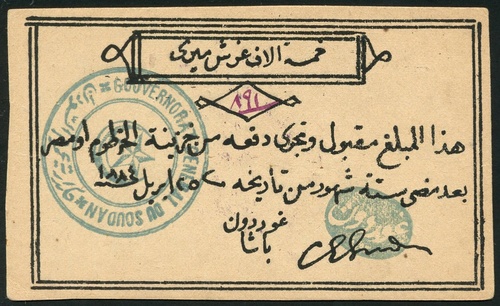 خمسة الاف غرش ميرى
١٩١
هذا المبلغ مقبول وتجرى دفعه من خزينة الخرطوم او مصر
بعد مضى ستة شهور من تاريخه ٢٥ ابريل سنة ١٨٨٤
غوردون
باشا
GOUVERNORAT GENERAL DU SOUDAN